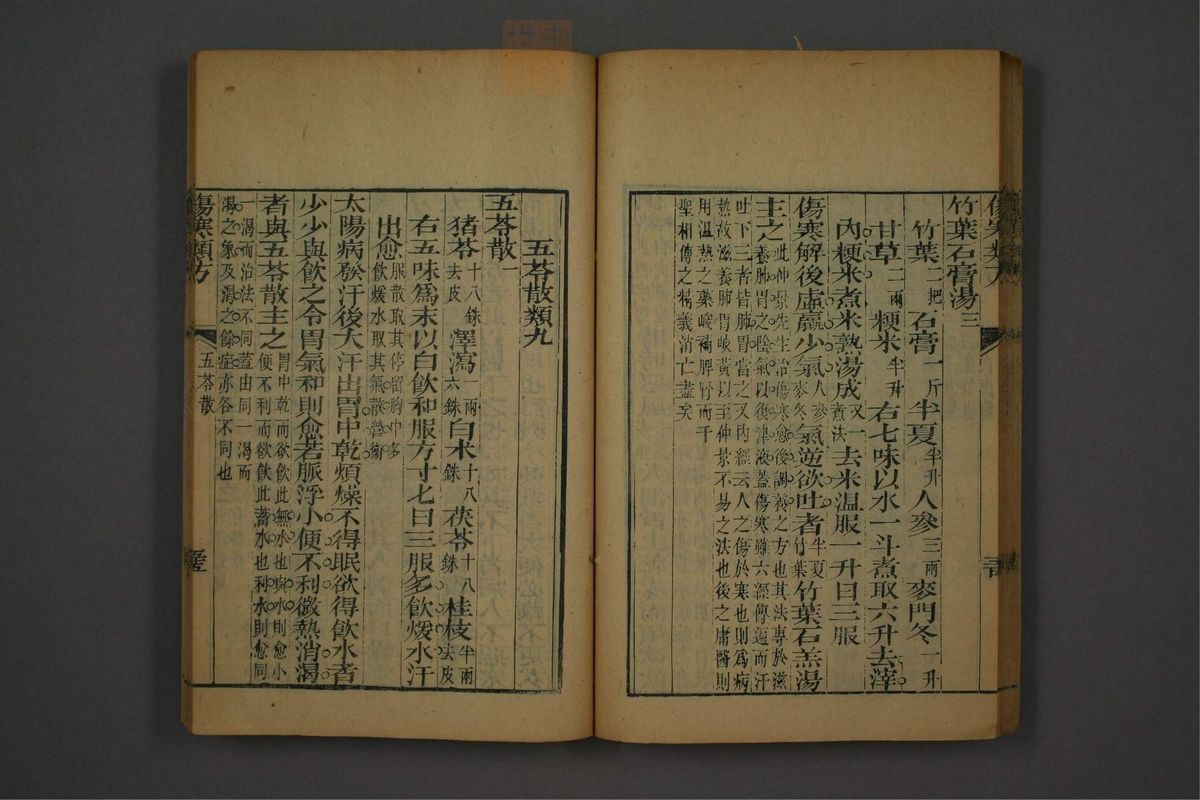 竹葉石膏湯三
竹葉二把 石膏一斤 半夏半升 人參三兩 麥門冬一升
甘草二兩 粳米半升 右七味以水一斗煮取六升去滓
內粳米煮米熟湯成又一煮法去米温服一升日三服
傷寒解後虛羸少氣人參麥冬氣逆欲吐者半夏竹葉竹葉石羔湯
主之此仲景先生治傷寒愈後調養之方也其法專於滋
養肺胃之陰氣以復津液蓋傷寒雖六經傳遍而汗
吐下三者皆肺胃當之又內經云人之傷於寒也則爲病
熱故滋養肺胃岐黃以至仲景不易之法也後之庸醫則
用溫熱之藥峻補脾腎而千
聖相傳之精義消亡盡矣
五苓散類九
五苓散一
猪苓十八銖去皮 澤瀉一兩六銖 白术十八銖 茯苓十八銖 桂枝半兩去皮
右五味爲末以白飲和服方寸匕日三服多飲煖水汗
出愈服散取其停留胸中多
飲煖水取其氣散營衛
太陽病發汗後大汗出胃中乾煩燥不得眠欲得飲水者
少少與飲之令胃氣和則愈若脈浮小便不利微熱消渴
者與五苓散主之胃中乾而欲飲此無水也與水則愈小
便不利而欲飲此蓄水也利水則愈同
一渴而治法不同蓋由同一渴而
渴之象及渴之餘症亦各不同也
傷寒類方
五苓散